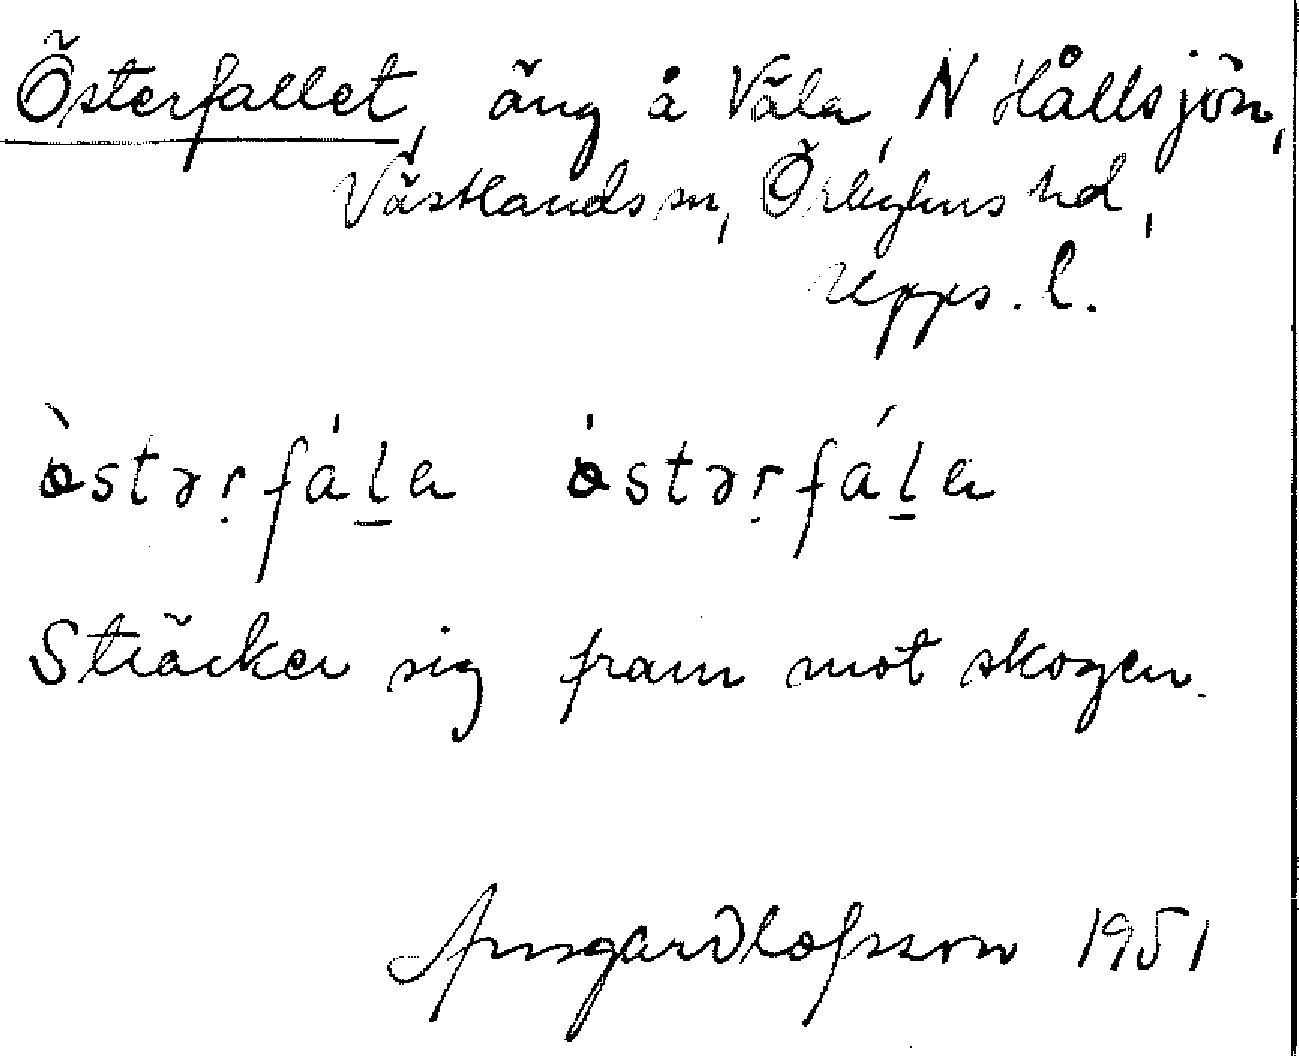 Österfallet, äng å Väla, N Hållsjön,
Västlands sn, Örbyhus hd,
Upps. l.
òstərfáḻa óstərfáḻa
Sträcker sig fram mot skogen.
Ansgar Olofsson 1951